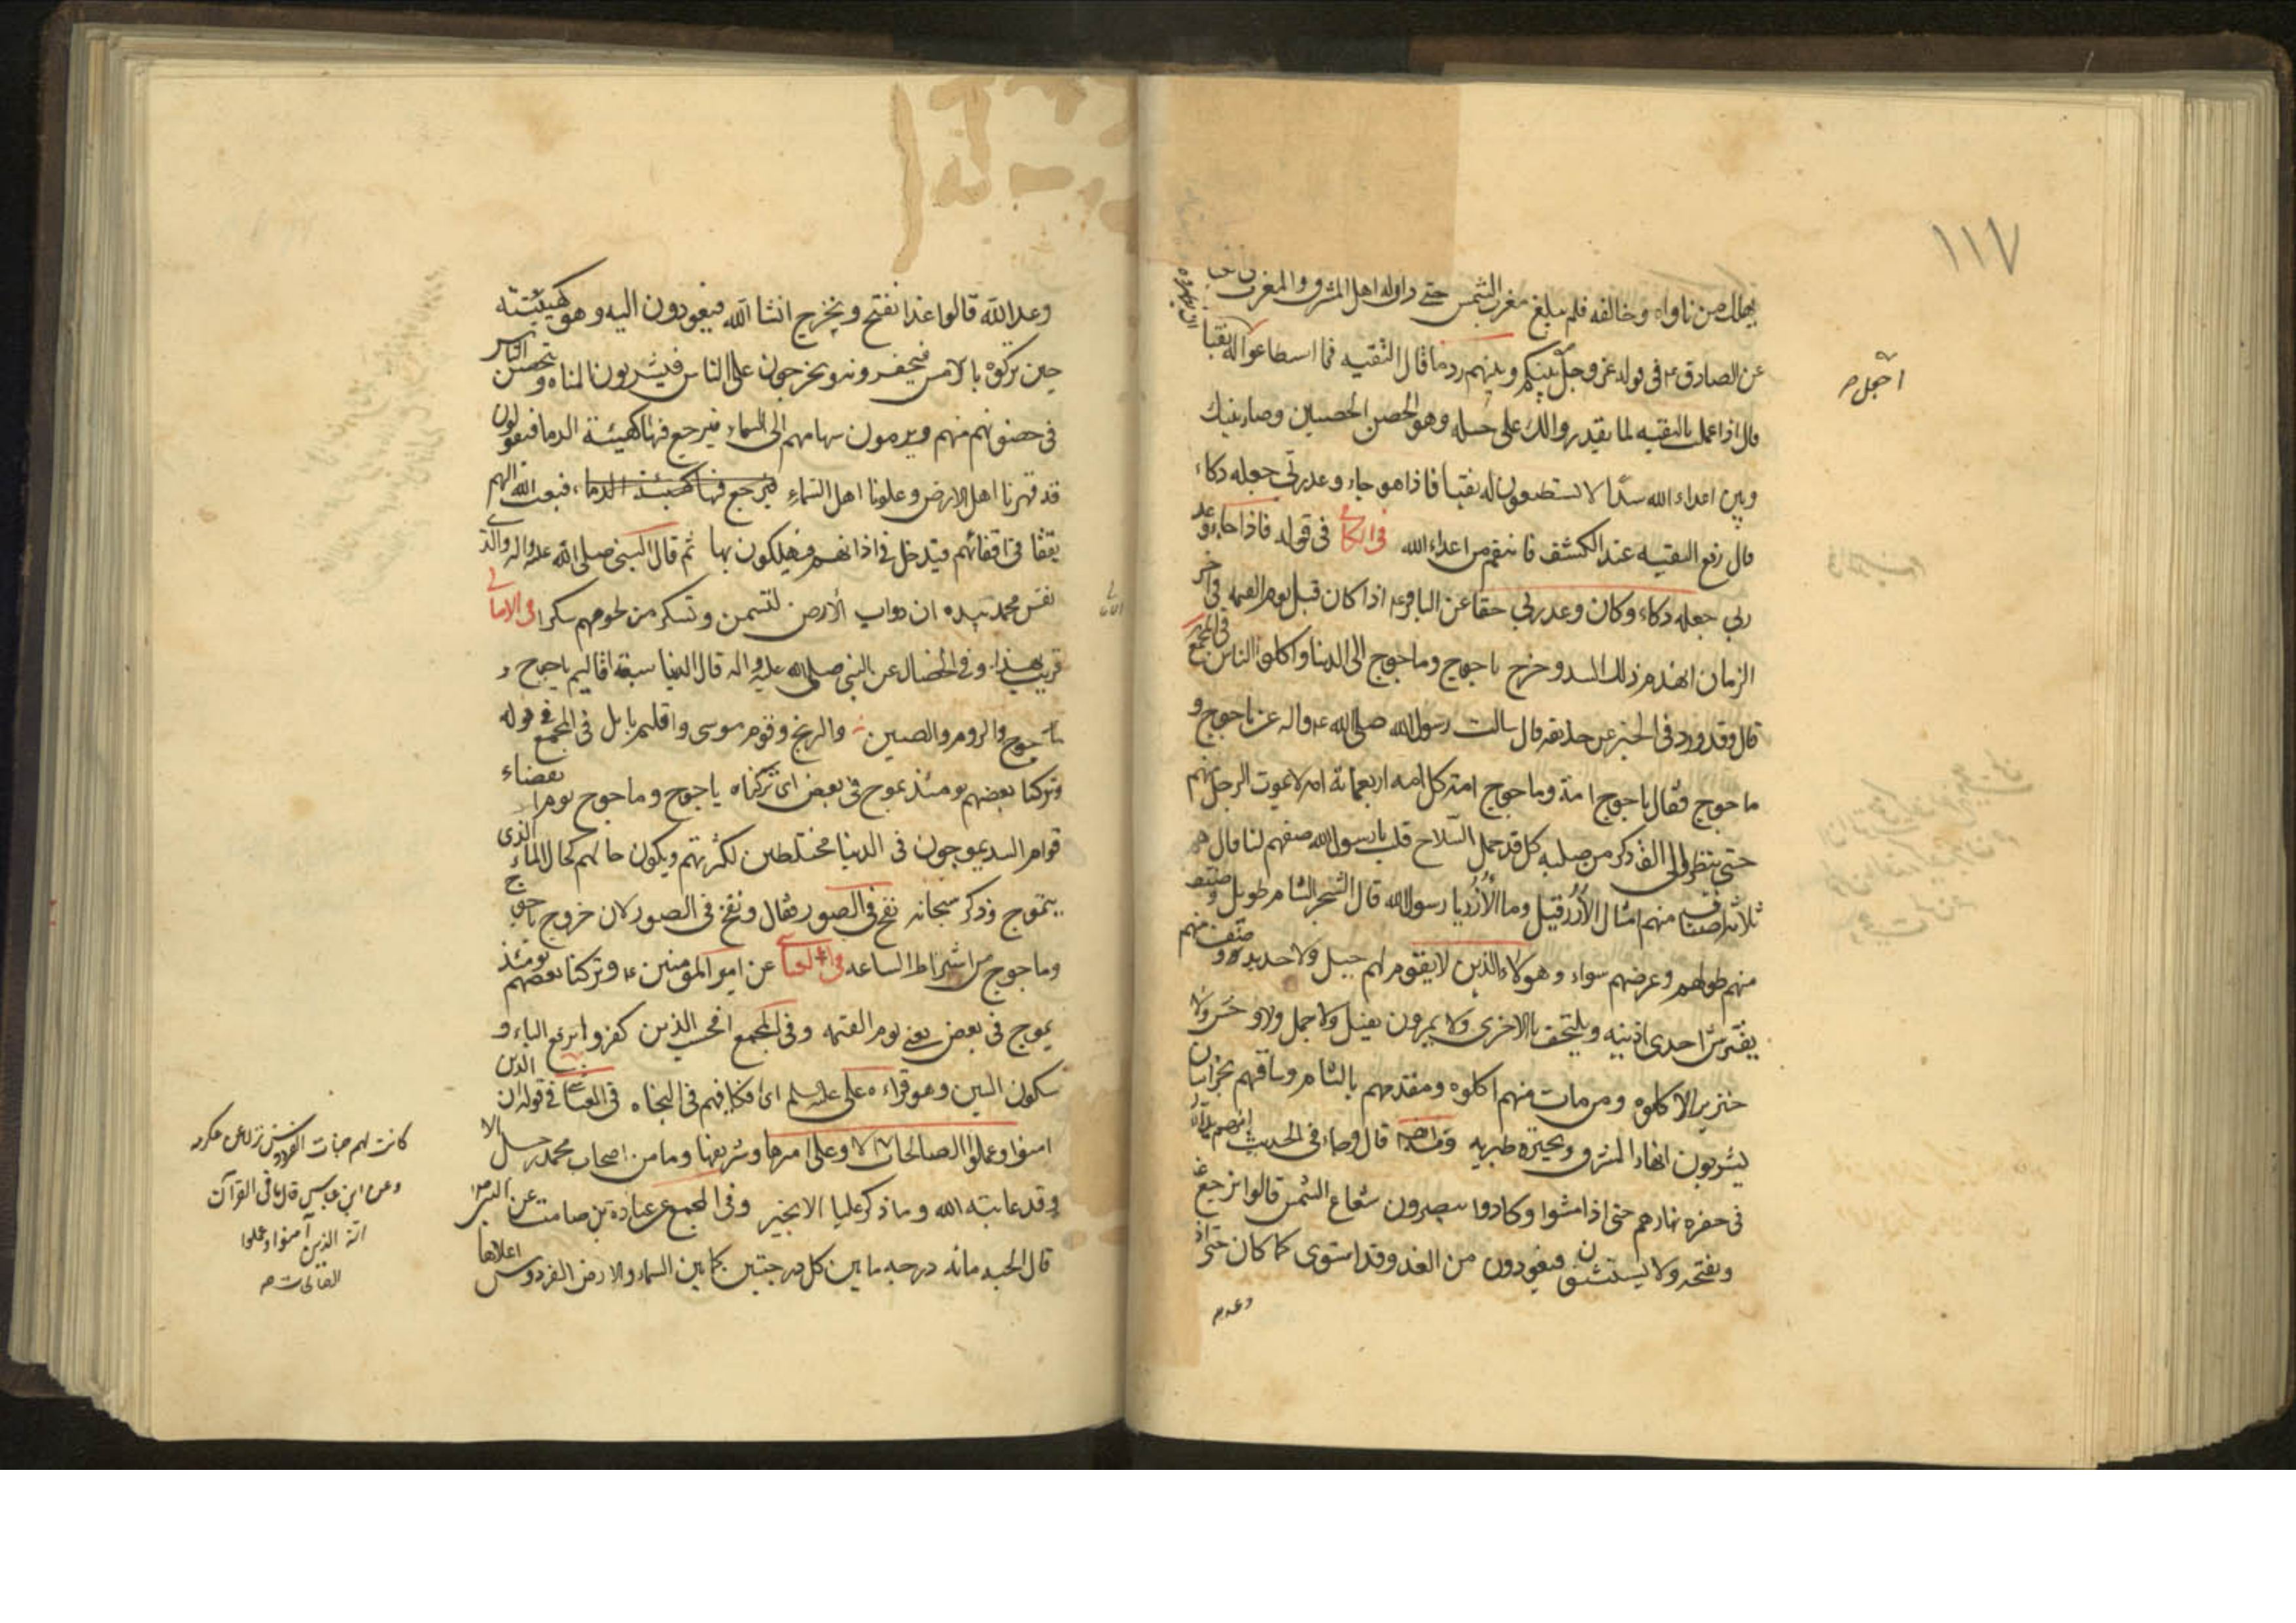 ١١٧
يهلك من ناواه وخالفه فلم يبلغ مغرب الشمس حتى دان له اهل المشرق والمغرب
عن الصادق ع في قوله عز وجل اجعل بينكم وبينهم ردما قال التقيه فما اسطاعوا له نقبا
قال اذا عمل بالتقيه لم يقدروا لك على حيله وهو الحصن الحصين وصار بينك
وبين اعداء الله سدا لا يستطيعون له نقبا فاذا هو جاء وعد ربي جعله دكاء
قال رفع التقيه عند الكشف فانتقم من اعداء الله في قوله فاذا جاء وعد
ربي جعله دكاء وكان وعد ربي حقا عن الباقر ع اذا كان قبل يوم القيمه في اخر
الزمان انهدم ذلك السد وخرج ياجوج وماجوج الى الدنيا واكلوا الناس في المجمع
قال وقد ورد في الخبر عن حذيفه قال سالت رسول الله صلى الله ع واله عن ياجوج و
ماجوج فقال ياجوج امة وماجوج امة كل امه اربعمائة امه لا يموت الرجل منهم
حتى ينظر الى الف ذكر من صلبه كل قد حمل السلاح قلت يا رسول الله صفهم لنا قال هم
ثلاثه اصناف صنف منهم امثال الأرز قيل وما الأرز يا رسول الله قال الشجر بالشام طويل وصنف
منهم طولهم وعرضهم سواء وهولاء الذين لا يقوم لهم جبل ولا حديد وصنف منهم
يفترش احدى اذنيه ويلتحف بالاخرى ولا يمرون بفيل ولا جمل ولا وحش ولا
خنزير الا اكلوه ومن مات منهم اكلوه ومقدمهم بالشام وساقهم بخراسان
يشربون انهار المشرق وبحيرة طبريه قال وجاء في الحديث
في حفره نهارهم حتى اذا امسوا وكادوا يبصرون شعاع الشمس قالوا نرجع غدا
ونفتحه ولا يستثنون فيعودون من الغد وقد استوى كما كان حتى اذ
وعد م
اجعل م
وعد الله قالوا غدا نفتح ونخرج انشا الله فيعودون اليه وهو كهيئته
حين تركوه بالامس فيحفرونه ويخرجون على الناس فيشربون المياه ويتحصن الناس
في حصونهم منهم ويرمون سهامهم الى السماء فيرجع فيها كهيئة الدما فيقولون
قد قهرنا اهل الارض وعلونا اهل السماء فيرجع فيها كهيئة الدماء فبعث الله اليهم
نغفا في اقفائهم فيدخل في اذانهم فيهلكون بها ثم قال النبي صلى الله عليه واله والذي
نفس محمد بيده ان دواب الأرض لتسمن وتسكر من لحومهم سكرا في الامالي
قريب هذا وفي الخصال عن النبي صلى الله عليه واله قال الدنيا سبعة اقاليم ياجوج و
ماجوج والروم والصين والزنج وقوم موسى واقليم بابل في المجمع في قوله
وتركنا بعضهم يومئذ يموج في بعض اى تركناه ياجوج وماجوج يوم انقضاء
قوام السد يموجون في الدنيا مختلطين لكثرتهم ويكون حالهم كحال الماء الذى
يتموج وذكر سبحانه نفخ في الصور فقال ونفخ في الصور لان خروج ياجوج
وماجوج من اشراط الساعه في العياشي عن امير المؤمنين ع وتركنا بعضهم يومئذ
يموج في بعض يعني يوم القيمه وفي المجمع افحسب الذين كفروا برفع الباء و
سكون السين وهو قراءه على عليه السلم اى افكافيهم في النجاه في العياشي في قوله ان الذين
امنوا وعملوا الصالحات الا وعلى اميرها وشريفها وما من اصحاب محمد رجل الا
وقد عاتبه الله وما ذكر عليا الا بخير وفي المجمع عن عبادة بن صامت عن النبي ص
قال الجنه مائه درجه ما بين كل درجتين كما بين السماء والارض الفردوس اعلاها
كانت لهم جنات الفردوس نزلا عن عكرمه
وعن ابن عباس قال ما في القرآن
آية الذين آمنوا وعملوا
الصالحات م